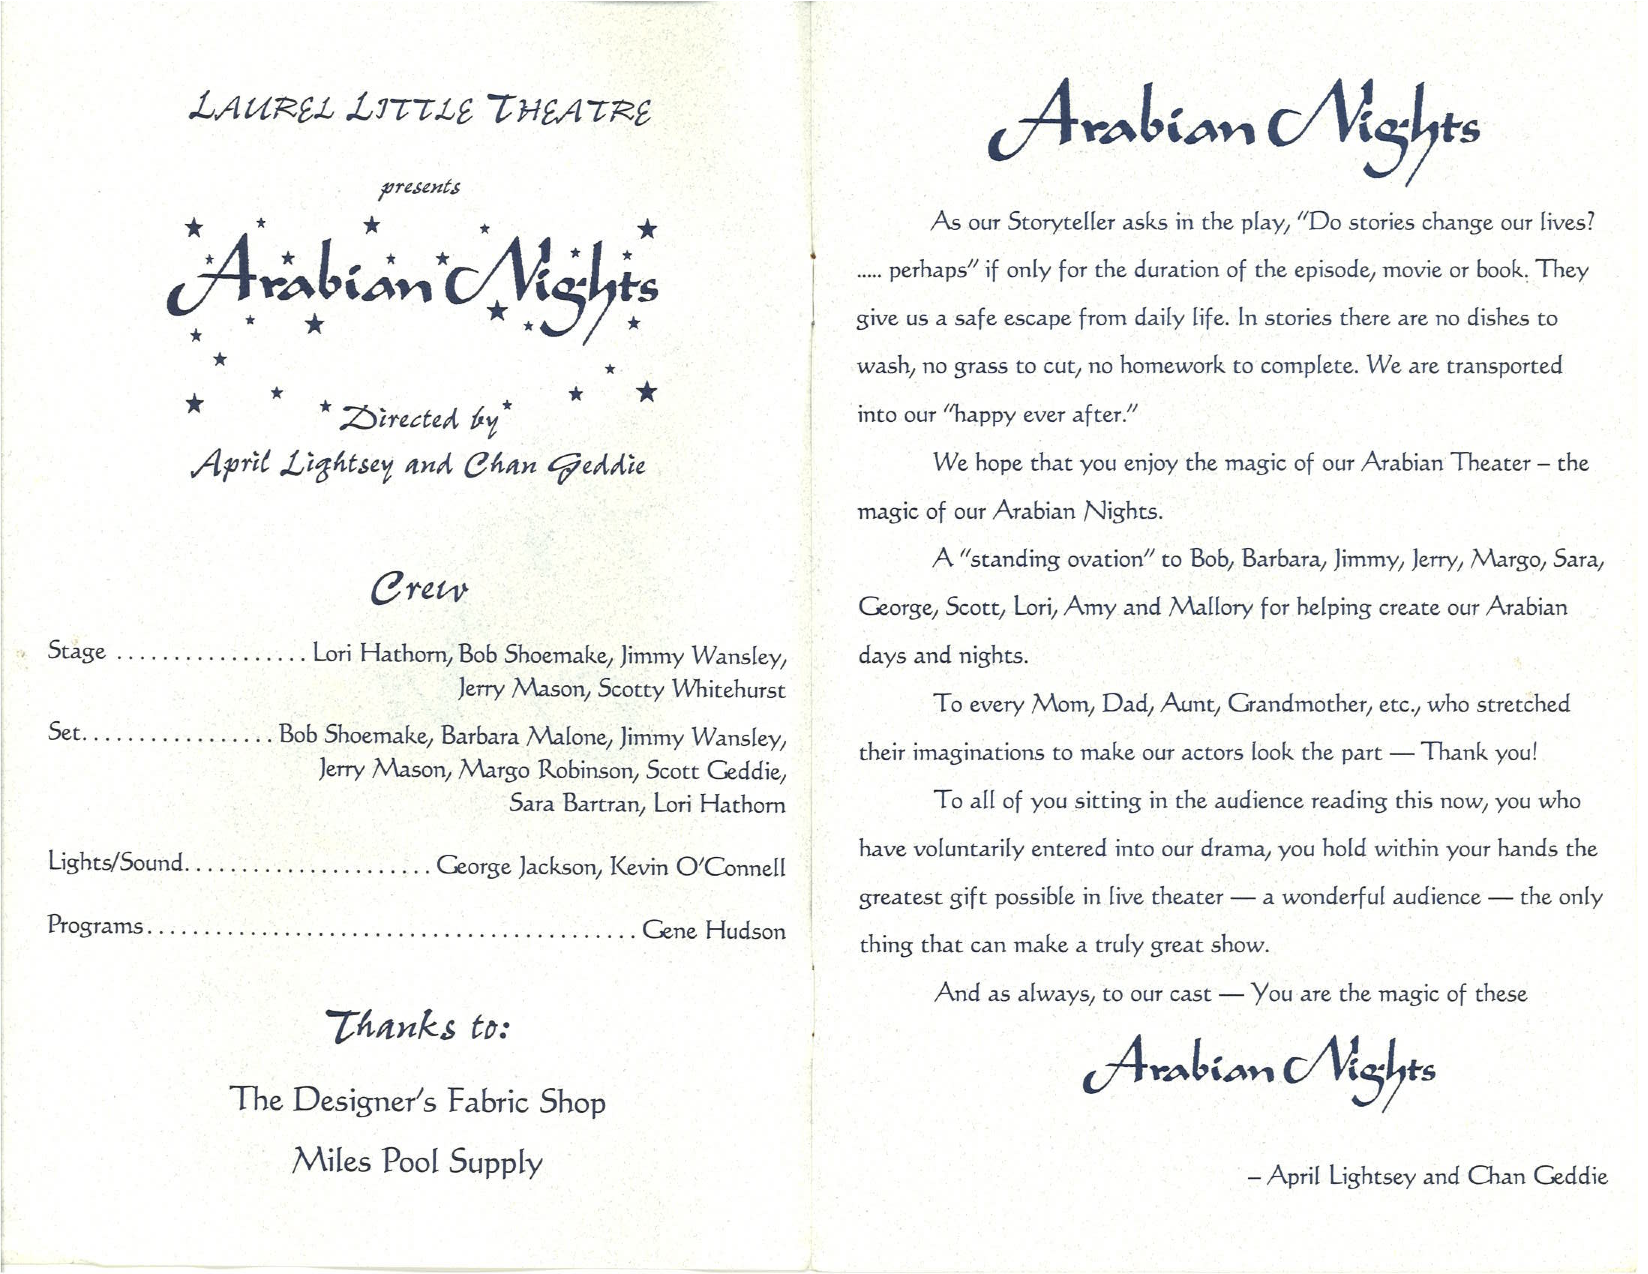 LAUREL LITTLE THEATRE
presents
Arabian Nights
Directed by
April Lightsey and Chan Geddie
Crew
Stage ................. Lori Hathorn, Bob Shoemake, Jimmy Wansley,
Jerry Mason, Scotty Whitehurst
Set................. Bob Shoemake, Barbara Malone, Jimmy Wansley,
Jerry Mason, Margo Robinson, Scott Geddie,
Sara Bartran, Lori Hathorn
Lights/Sound...................... George Jackson, Kevin O'Connell
Programs........................................... Gene Hudson
Thanks to:
The Designer's Fabric Shop
Miles Pool Supply
Arabian Nights
As our Storyteller asks in the play, "Do stories change our lives?
..... perhaps" if only for the duration of the episode, movie or book. They
give us a safe escape from daily life. In stories there are no dishes to
wash, no grass to cut, no homework to complete. We are transported
into our "happy ever after."
We hope that you enjoy the magic of our Arabian Theater – the
magic of our Arabian Nights.
A "standing ovation" to Bob, Barbara, Jimmy, Jerry, Margo, Sara,
George, Scott, Lori, Amy and Mallory for helping create our Arabian
days and nights.
To every Mom, Dad, Aunt, Grandmother, etc., who stretched
their imaginations to make our actors look the part — Thank you!
To all of you sitting in the audience reading this now, you who
have voluntarily entered into our drama, you hold within your hands the
greatest gift possible in live theater — a wonderful audience — the only
thing that can make a truly great show.
And as always, to our cast — You are the magic of these
Arabian Nights
– April Lightsey and Chan Geddie